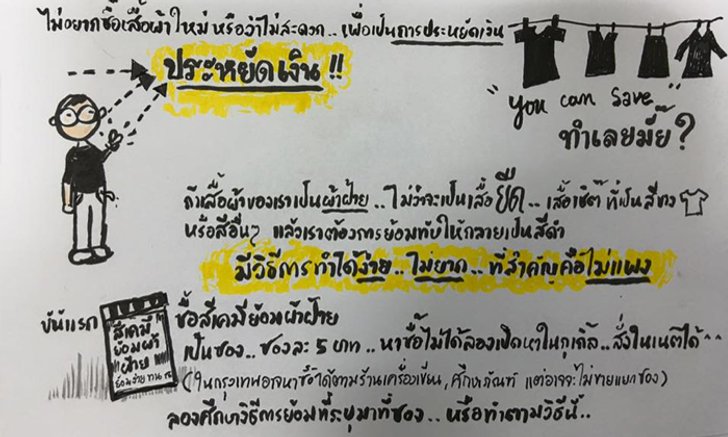 ไม่อยากซื้อเสื้อผ้าใหม่ หรือว่าไม่สะดวก.. เพื่อเป็นการประหยัดเงิน
ประหยัดเงิน !!
"you can save"
ทำเลยมั้ย?
ถ้าเสื้อผ้าของเราเป็นผ้าฝ้าย.. ไม่ว่าจะเป็นเสื้อยืด.. เสื้อเชิ้ต ที่เป็นสีขาว
หรือสีอื่นๆ แล้วเราต้องการย้อมทับให้กลายเป็นสีดำ
มีวิธีการทำได้ง่าย.. ไม่ยาก.. ที่สำคัญคือไม่แพง
ขั้นแรก
สีเคมี
ย้อมผ้า
ฝ้าย
ย้อมง่าย ทน
ซื้อสีเคมีย้อมผ้าฝ้าย
เป็นซอง.. ซองละ 5 บาท.. หาซื้อไม่ได้ลองเปิดหาในกูเกิ้ล.. สั่งในเนตได้ ^^
(ในกรุงเทพอาจหาซื้อได้ตามร้านเครื่องเขียน, ศึกษาภัณฑ์ แต่อาจจะไม่ขายแยกซอง)
ลองศึกษาวิธีการย้อมที่ระบุมาที่ซอง.. หรือทำตามวิธีนี้..